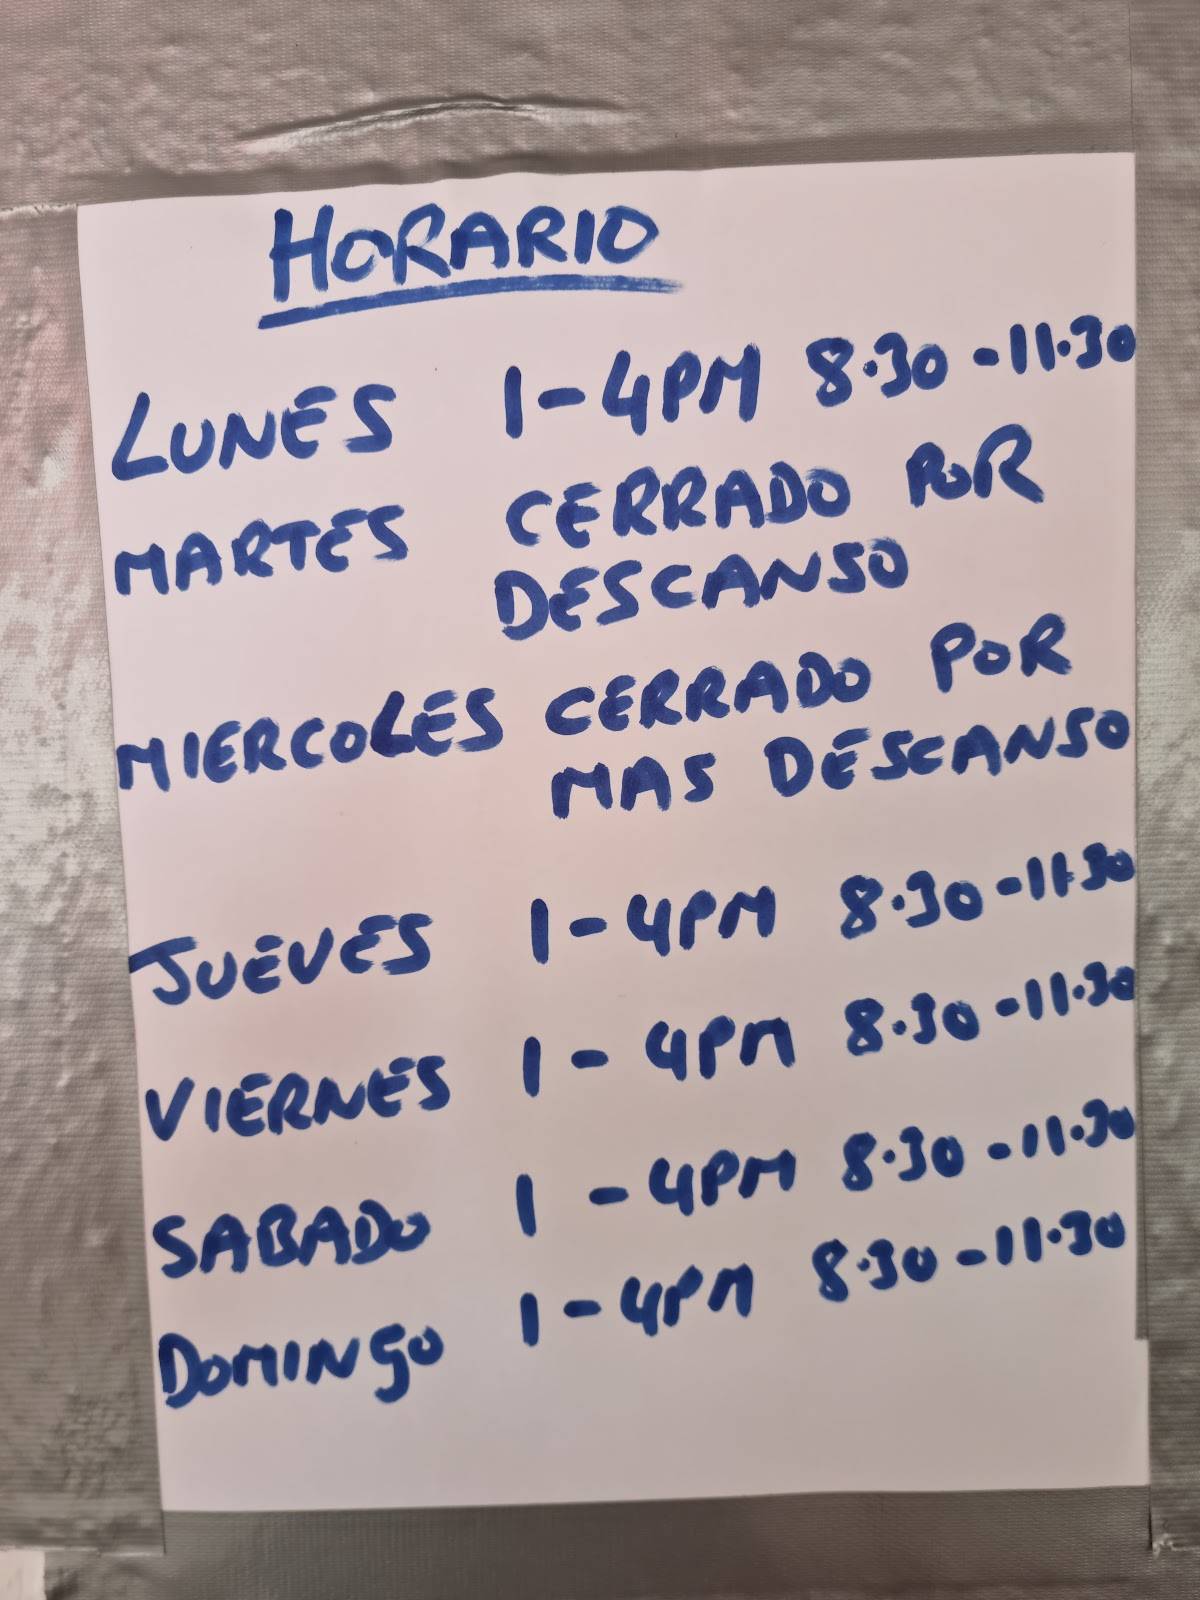 HORARIO
LUNES 1-4PM 8.30-11.30
MARTES CERRADO POR
DESCANSO
MIERCOLES CERRADO POR
MAS DESCANSO
JUEVES 1-4PM 8.30-11.30
VIERNES 1-4PM 8.30-11.30
SABADO 1-4PM 8.30-11.30
DOMINGO 1-4PM 8.30-11.30